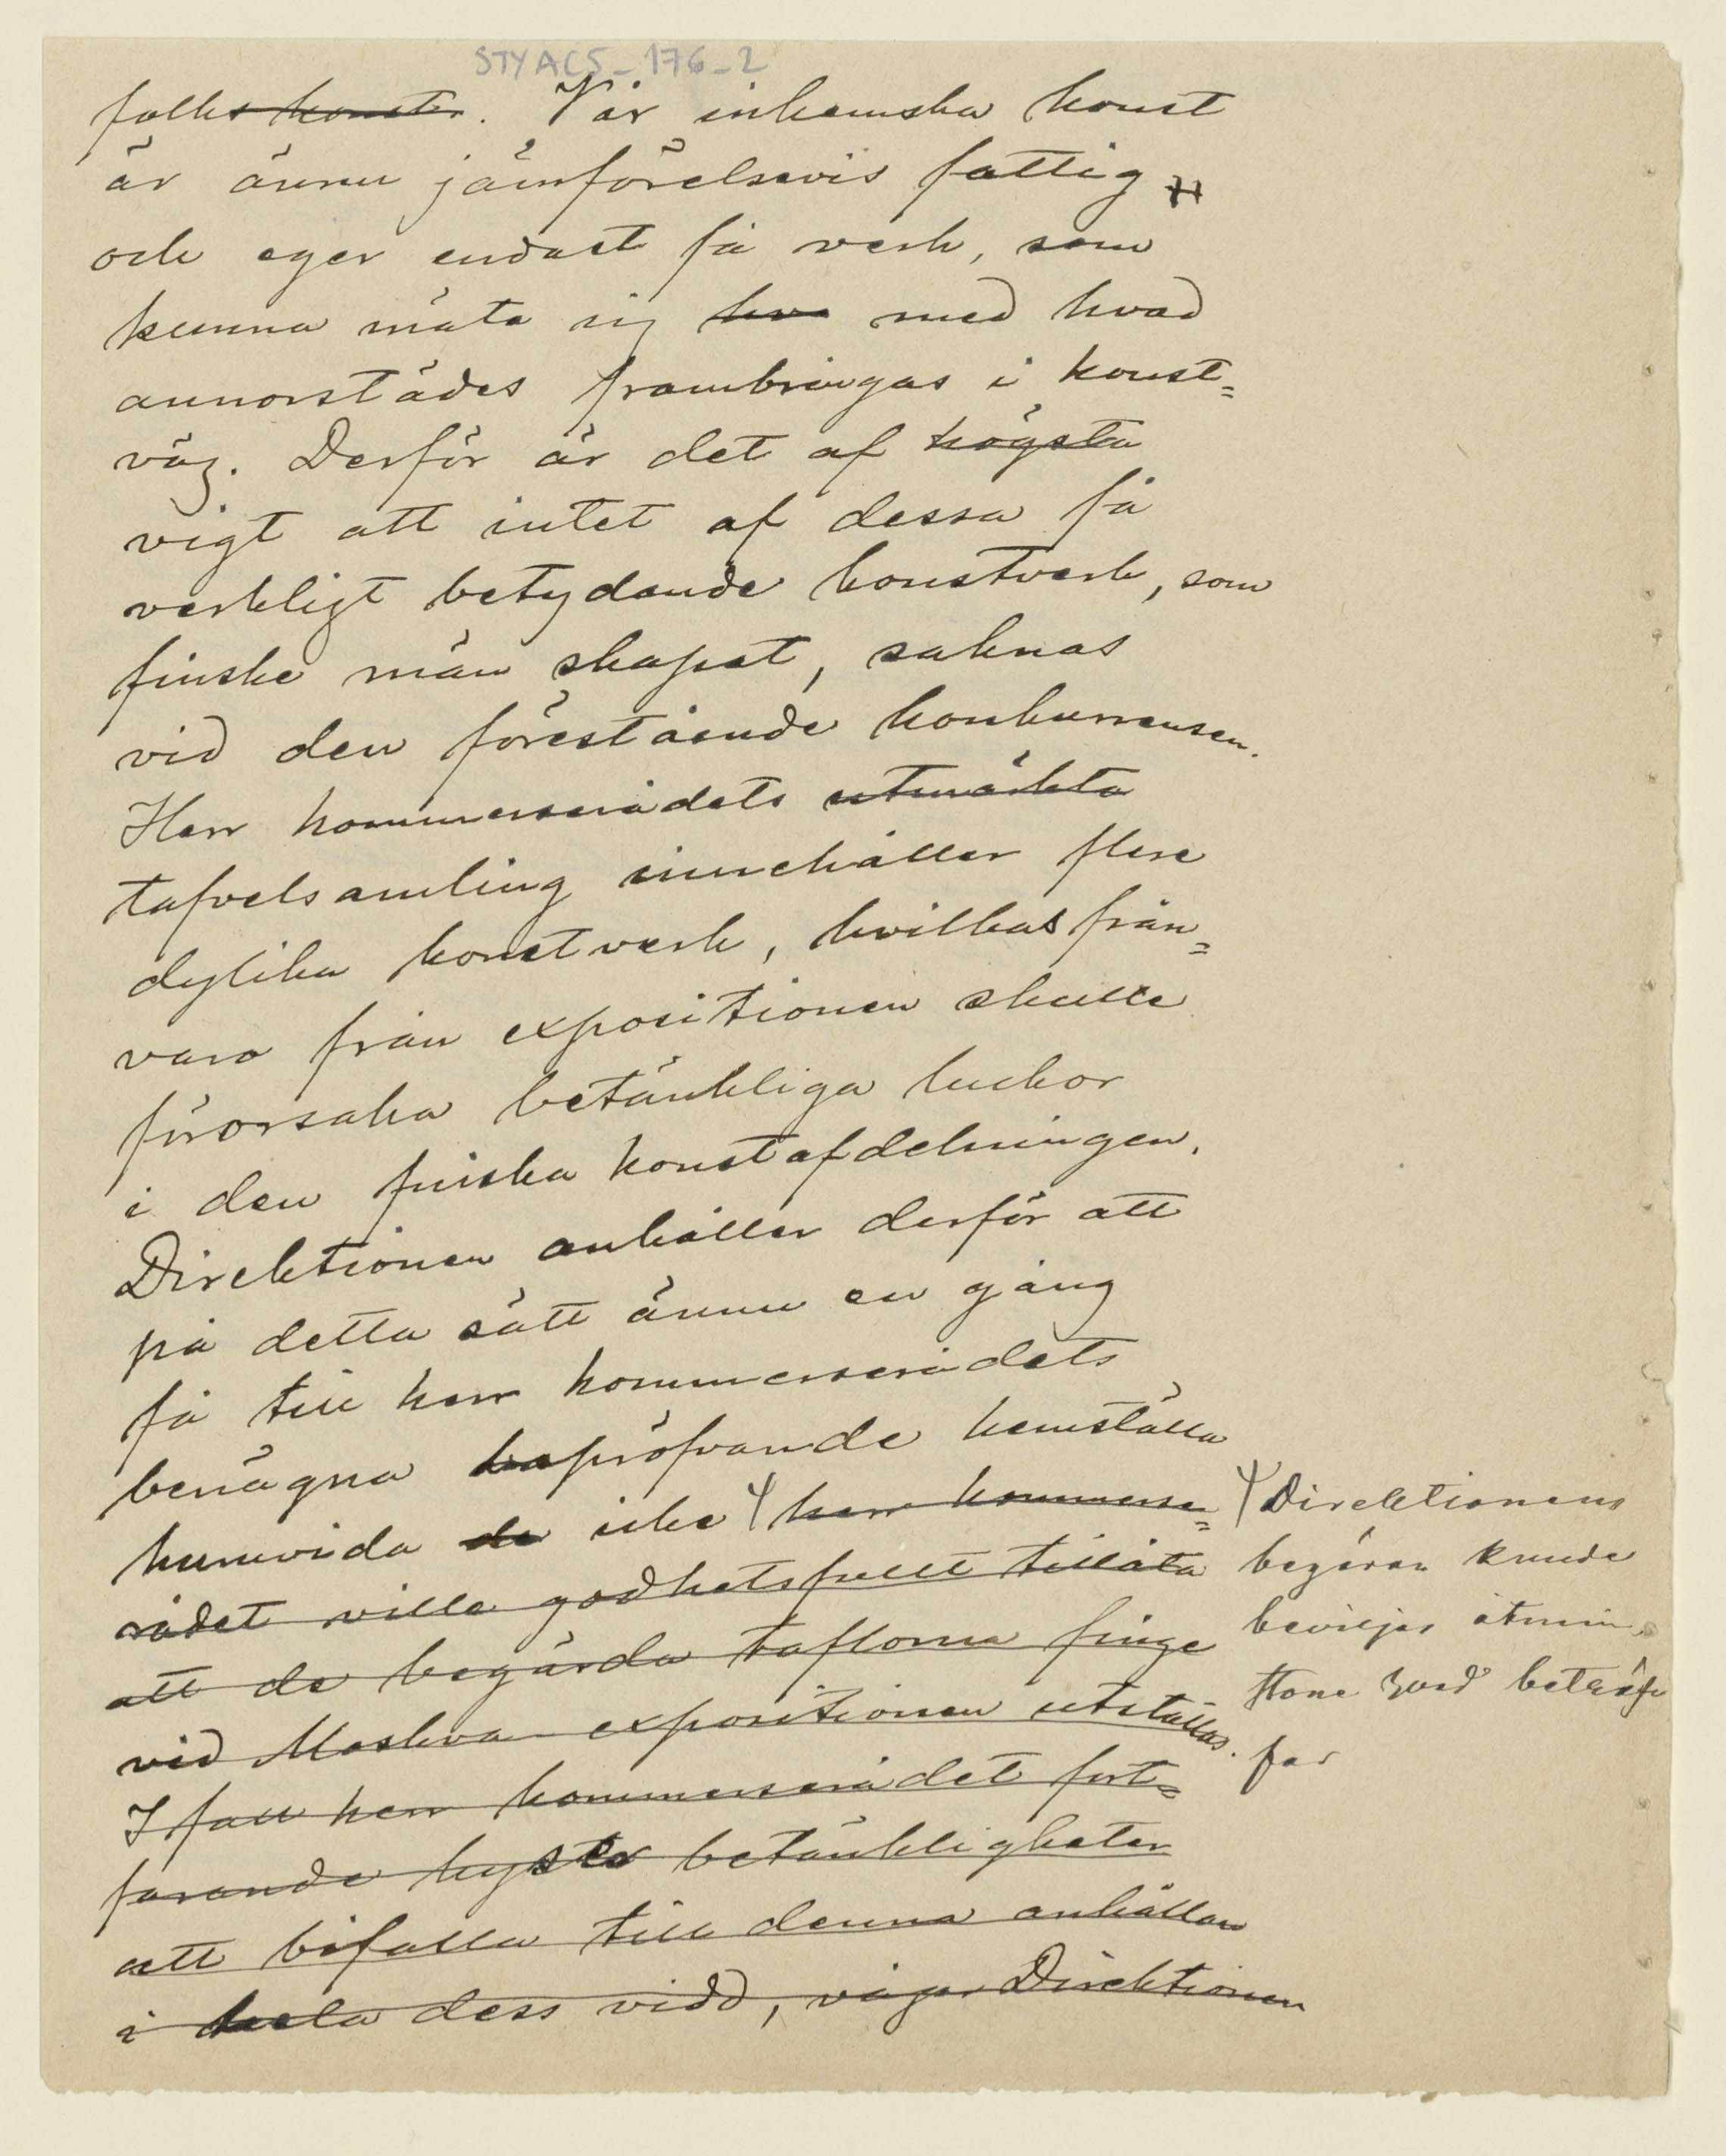 STYACS_176_2
folks konster. Vår inhemska konst
är ännu jämförelsevis fattig
och eger endast få verk, som
kunna mäta sig hva med hvad
annorstädes frambringas i konst=
väg. Derför är det af högsta
vigt att intet af dessa få
verkligt betydande konstverk, som
finske män skapat, saknas
vid den förestående konkurrensen.
Herr kommerserådets utmärkta
tafvelsamling innehåller flere
dylika konstverk, hvilkas från=
varo från expositionen skulle
förorsaka betänkliga luckor
i den finska konstafdelningen.
Direktionen anhåller derför att
på detta sätt ännu en gång
få till herr kommerserådets
benägna bepröfvande hemställa
huruvida de icke herr kommerse=
rådet ville godhetsfullt tillåta
att de begärda taflorna finge
vid Moskva expositionen utställas.
I fall herr kommerserådet fort=
farande hyste betänkligheter
att bifalla till denna anhållan
i hela dess vidd, vågar Direktionen
Direktionens
begäran kunde
beviljas åtmin
stone hvad beträf
far